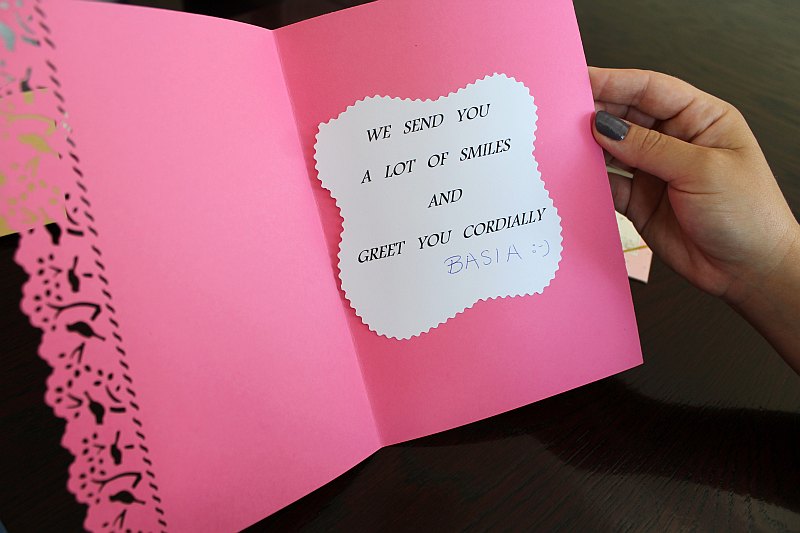 WE SEND YOU
A LOT OF SMILES
AND
GREET YOU CORDIALLY
BASIA :-)